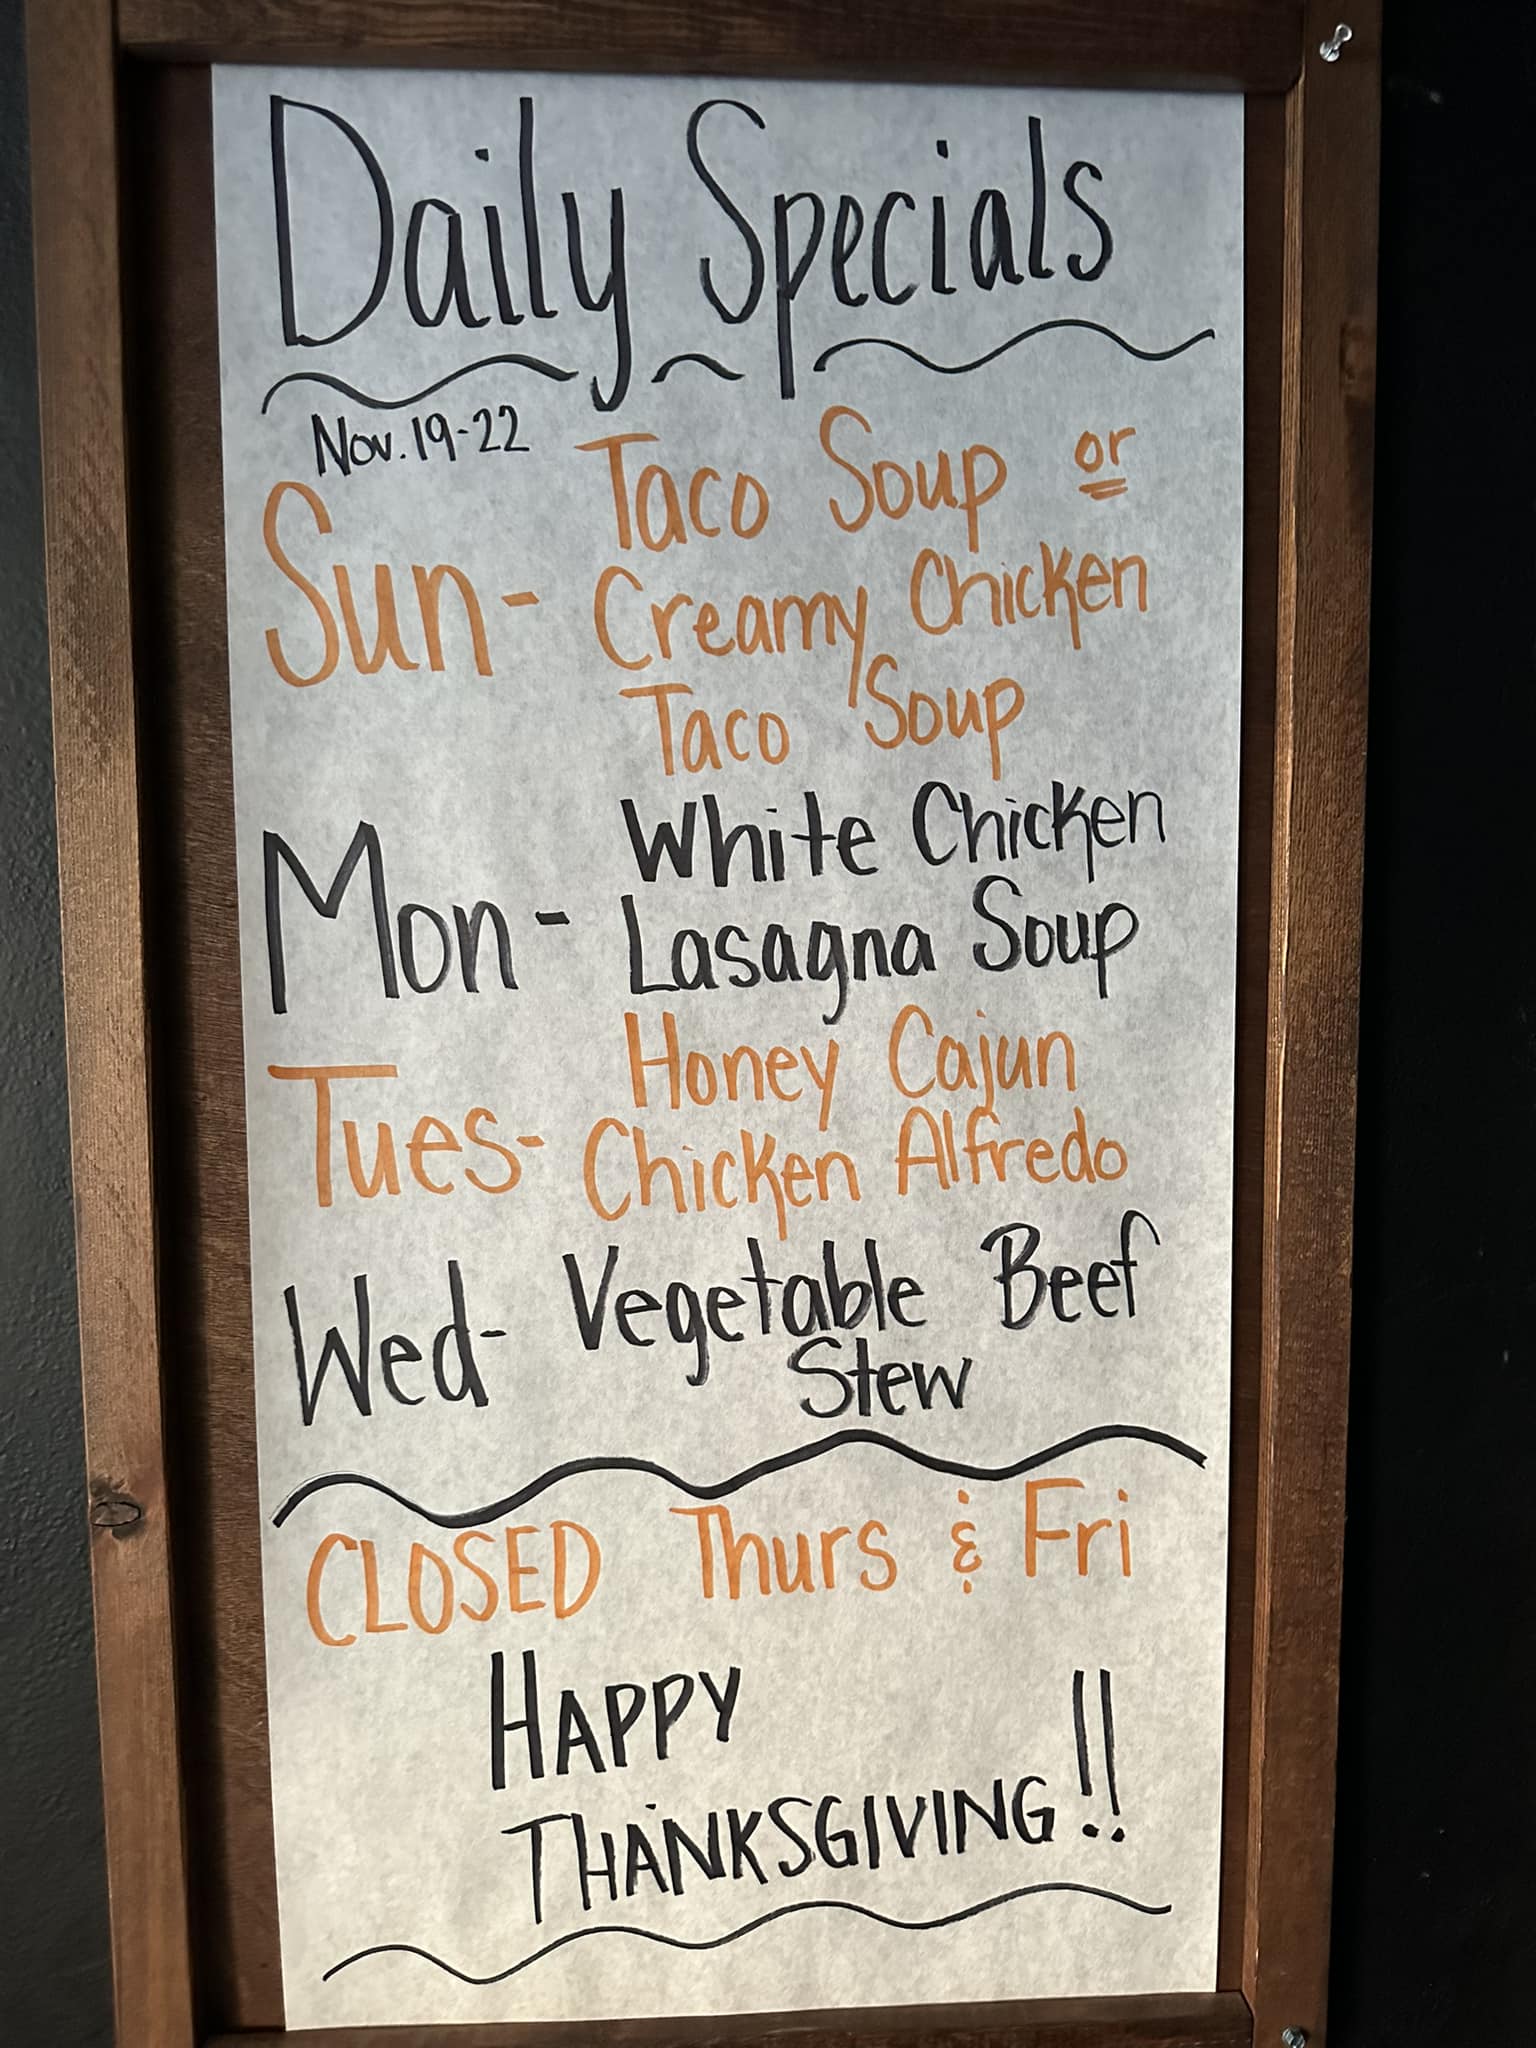 Daily Specials
Nov. 19-22
Sun- Taco Soup or
Creamy Chicken
Taco Soup
Mon- White Chicken
Lasagna Soup
Tues- Honey Cajun
Chicken Alfredo
Wed- Vegetable Beef
Stew
CLOSED Thurs & Fri
HAPPY
THANKSGIVING!!